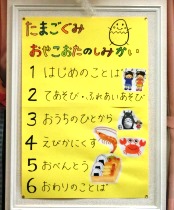 たまごぐみ
おやこおたのしみかい
1 はじめのことば
2 てあそび・ふれあいあそび
3 おうちのひとから
4 えびかにくす
5 おべんとう
6 おわりのことば